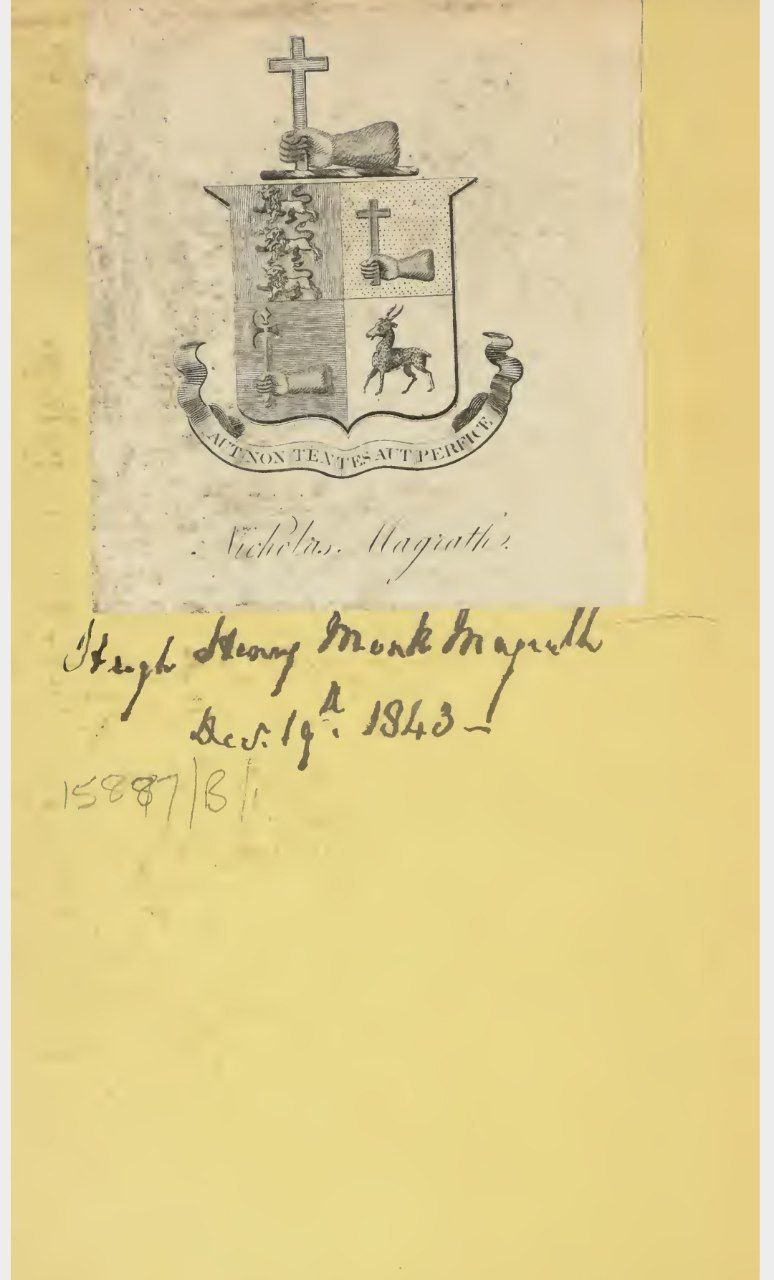 AUT NON TENTES AUT PERFICE
Nicholas Magrath.
Hugh Henry Monk Magrath
Dec. 19th. 1843 –
15887/B/.